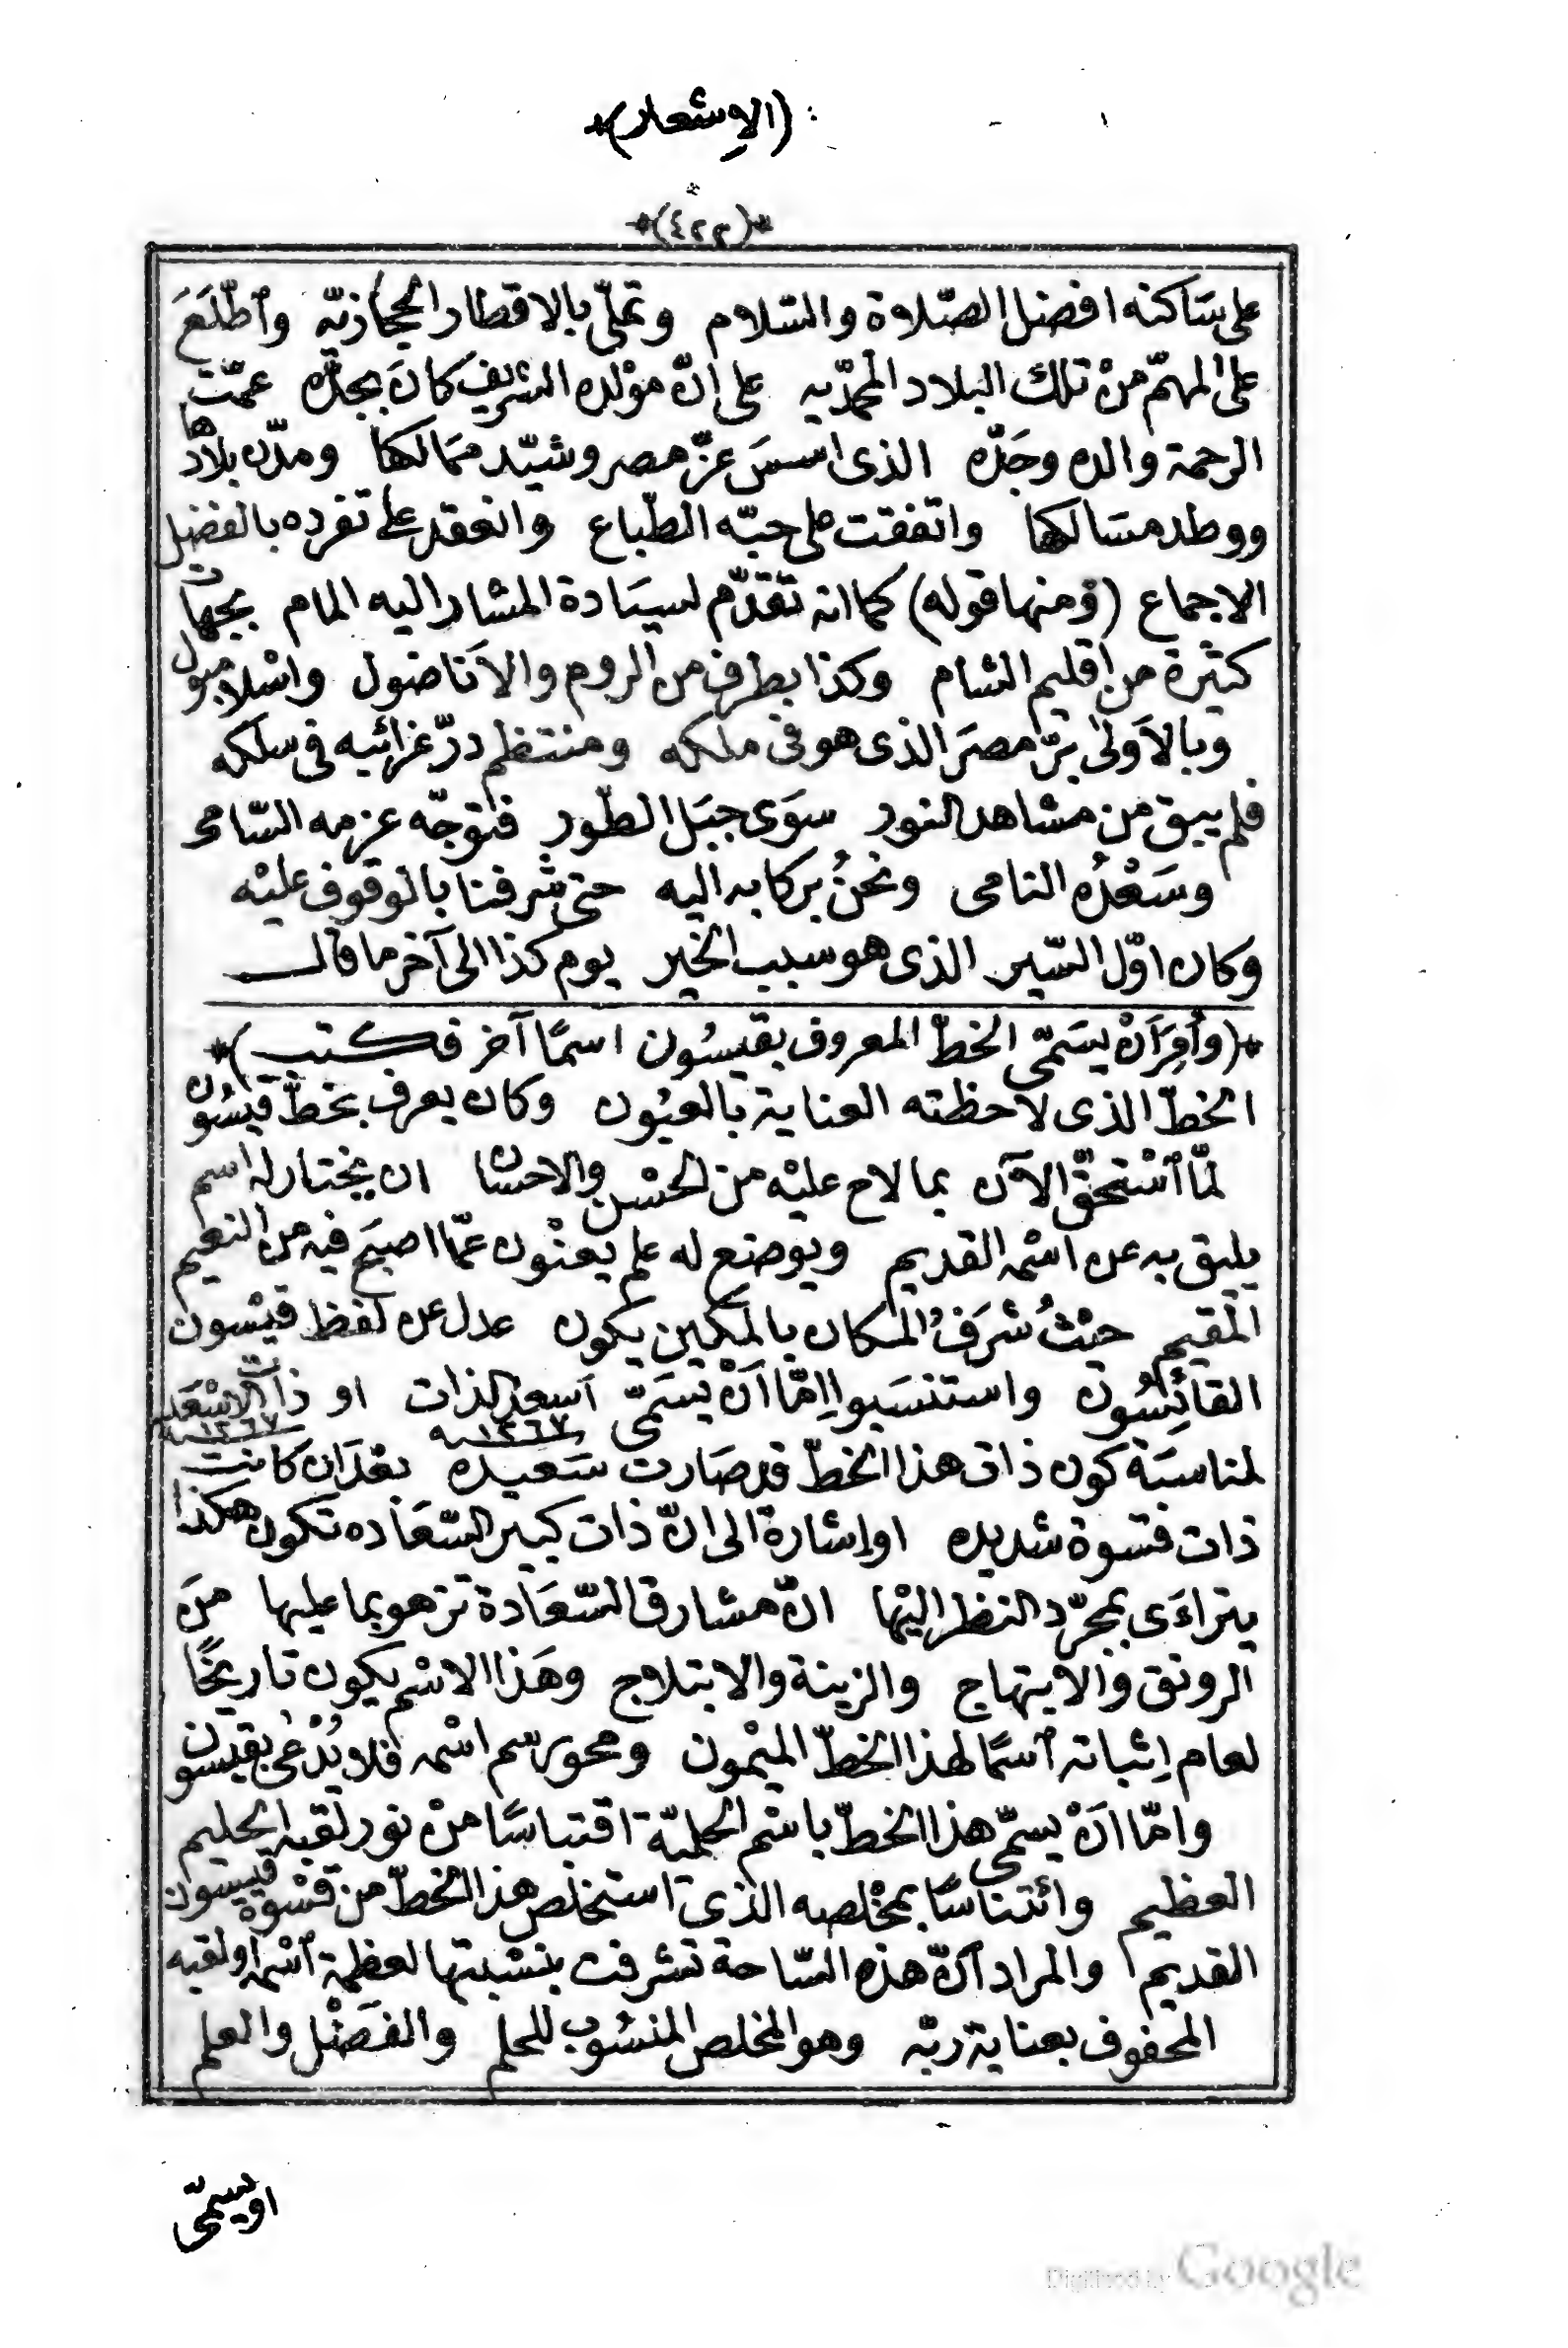 (الإشعار)*
*(٤٢٣)*
على ساكنه افضل الصّلاة والسّلام وتملّى بالاقطار الحجازيّه وٱطّلَعَ
على المهمّ من تلك البلاد المحمديه على انّ مولده الشريف كان بجدّه عمّت
الرحمة والده وجَدّه الذى اسسَ عزّ مصر وشيّد ممالكها ومدّن بلادها
ووطد مسالكها واتفقت على حبّه الطّباع وانعقد على تفرده بالفضل
الاجماع (ومنها قوله) كما انه تقدّم لسيادة المشار اليه المام بجهات
كثيرة من اقليم الشام وكذا بطرف من الروم والاناضول واسْلامبول
وبالاَولى برّ مصرَ الذى هو فى ملكه ومنتظم درّ غرائبه فى سلكه
فلم يبق من مشاهد النور سوَى جبَل الطّور فتوجّه عزمه السّامى
وسَعْدُه النامى ونحنُ بركابه اليه حتى شُرفنا بالوقوف عليْه
وكان اوّل السّير الذى هو سبب الخير يوم كذا الى آخر ما قال
*(وأُمِرَ اَنْ يسَمّى الخطّ المعروف بقيسُون اسمًا آخر فكتب)*
الخطّ الذى لاحظته العناية بالعيُون وكان يعرف بخطّ قيسُون
لمّا ٱسْتحقّ الآن بما لاح عليْه من الحسْن والاحسان ان يختار له اسم
يليق به عن اسْمه القديم ويوضع له علم يعنْون عمّا اصبَح فيه من النعيم
المقيم حيْثُ شرَفُ المكان بالمكين يكون عدل عن لفظ قيْسون
القائِسُون واستنسَبوا إمّا اَنْ يسَمّى اسعد الذات او ذات الاسْعَد
سنة ١٢٦٧ سنة ١٢٦٧
لمناسَبَة كون ذات هذا الخطّ قد صَارت سَعيده بعْدَ ان كانت
ذات قسْوة شديده او إشارة الى انّ ذات كبير السّعَاده تكون هكذا
يتراءَى بمجرّد النظر اليْها انّ مشارق السّعَادة تزهو بما عليها منَ
الرونق والابتهاج والزينة والابتلاج وهَذا الاسْم يكون تاريخًا
لعام إثباته ٱسمًا لهذا الخطّ الميْمون ومحو رسْم اسْمه فلا يُدْعىٰ بقيسون
وامّا اَنْ يسمّى هذا الخطّ باسْم الحلميّة اقتباسًا منْ نور لقبه الحليم
العظيم وائتناسًا بمخْلصه الذى استخلص هذا الخطّ من قسْوة قيسون
القديم والمراد اَنّ هذه السّاحة تشرفت بنسْبتها لعظمة ٱسْمه او لقبه
المحفوف بعناية ربّه وهو المخلص المنسُوب للحلم والفَضْل والعلم
او يسمّى
Digitized by Google